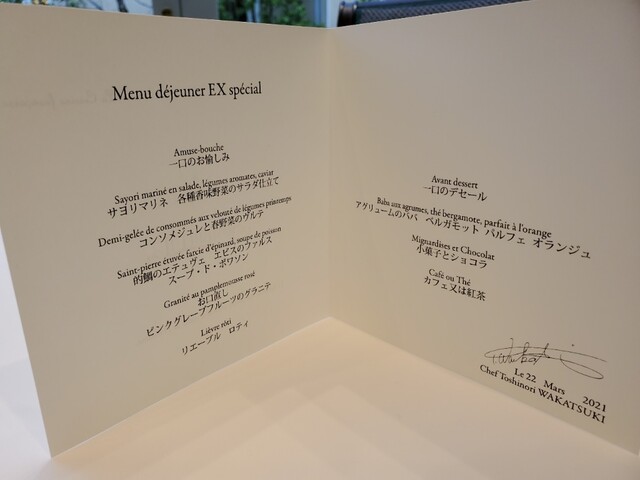 Menu déjeuner EX spécial
Amuse-bouche
一口のお愉しみ
Sayori mariné en salade, légumes aromates, caviar
サヨリマリネ 各種香味野菜のサラダ仕立て
Demi-gelée de consommés aux velouté de légumes printemps
コンソメジュレと春野菜のヴルテ
Saint-pierre étuvée farcie d'épinard, soupe de poisson
的鯛のエテュヴェ エピスのヴァルス
スープ・ド・ポワソン
Granité au pamplemousse rosé
お口直し
ピンクグレープフルーツのグラニテ
Lièvre rôti
リエーブル ロティ
Avant dessert
一口のデセール
Baba aux agrumes, thé bergamote, parfait à l'orange
アグリュームのババ ベルガモット パルフェ オランジュ
Mignardises et Chocolat
小菓子とショコラ
Café ou Thé
カフェ又は紅茶
Le 22 Mars 2021
Chef Toshinori WAKATSUKI